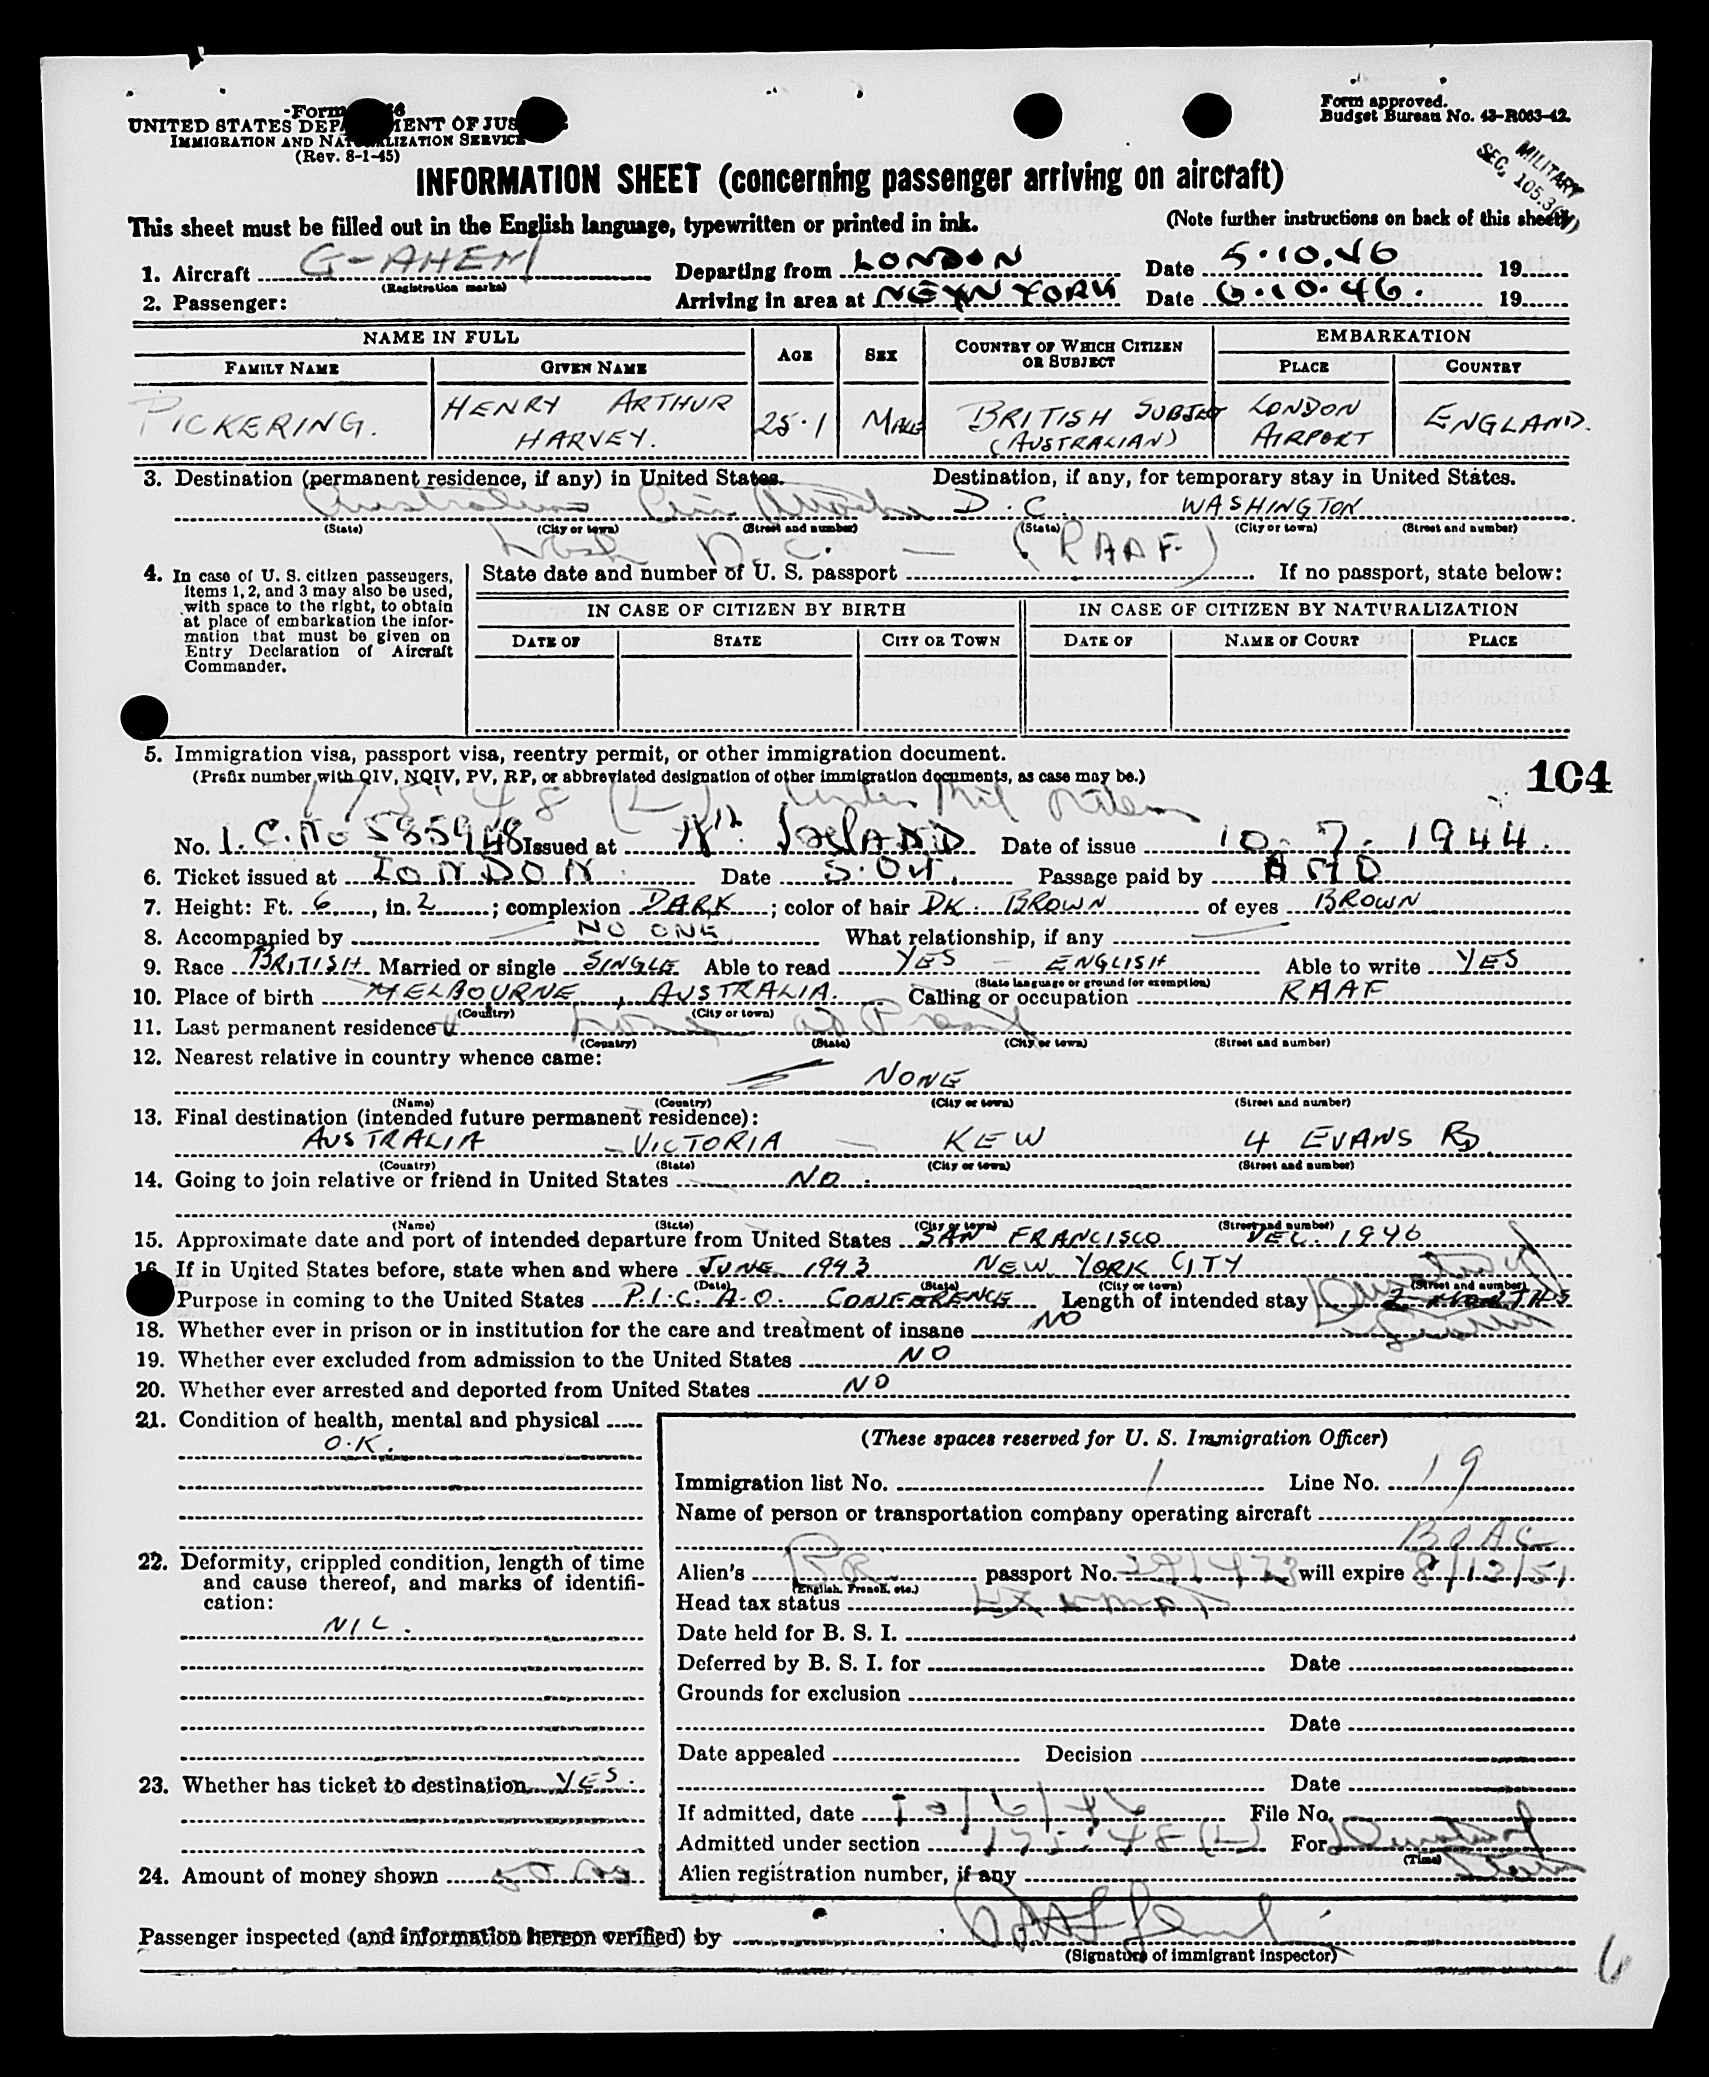 Form
UNITED STATES DEPARTMENT OF JUSTICE
IMMIGRATION AND NATURALIZATION SERVICE
(Rev. 8-1-45)
Form approved.
Budget Bureau No. 43-R063-42.
MILITARY
SEC. 105.3
INFORMATION SHEET (concerning passenger arriving on aircraft)
This sheet must be filled out in the English language, typewritten or printed in ink. (Note further instructions on back of this sheet)
1. Aircraft G-AHEM Departing from LONDON Date 5.10.46 19
(Registration marks)
2. Passenger: Arriving in area at NEW YORK Date 6.10.46. 19
NAME IN FULL AGE SEX COUNTRY OF WHICH CITIZEN OR SUBJECT EMBARKATION
FAMILY NAME GIVEN NAME PLACE COUNTRY
PICKERING. HENRY ARTHUR HARVEY. 25.1 MALE BRITISH SUBJECT (AUSTRALIAN) LONDON AIRPORT ENGLAND.
3. Destination (permanent residence, if any) in United States. Destination, if any, for temporary stay in United States.
Australian D.C. WASHINGTON
(State) (City or town) (Street and number) (State) (City or town) (Street and number)
Wash D.C. — (RAAF)
4. In case of U. S. citizen passengers, items 1, 2, and 3 may also be used, with space to the right, to obtain at place of embarkation the information that must be given on Entry Declaration of Aircraft Commander.
State date and number of U. S. passport If no passport, state below:
IN CASE OF CITIZEN BY BIRTH IN CASE OF CITIZEN BY NATURALIZATION
DATE OF STATE CITY OR TOWN DATE OF NAME OF COURT PLACE
5. Immigration visa, passport visa, reentry permit, or other immigration document.
(Prefix number with QIV, NQIV, PV, RP, or abbreviated designation of other immigration documents, as case may be.)
104
175.48 (L) Under Mil
No. I.C. No 585948 Issued at Date of issue 10.7.1944.
6. Ticket issued at LONDON. Date 5.Oct. Passage paid by
7. Height: Ft. 6, in. 2; complexion DARK; color of hair DK. BROWN of eyes BROWN
8. Accompanied by NO ONE What relationship, if any —
9. Race BRITISH Married or single SINGLE Able to read YES - ENGLISH Able to write YES
(State language or ground for exemption)
10. Place of birth MELBOURNE, AUSTRALIA. Calling or occupation RAAF
(Country) (City or town)
11. Last permanent residence
(Country) (State) (City or town) (Street and number)
12. Nearest relative in country whence came:
NONE
(Name) (Country) (City or town) (Street and number)
13. Final destination (intended future permanent residence):
AUSTRALIA - VICTORIA - KEW 4 EVANS RD.
(Country) (State) (City or town) (Street and number)
14. Going to join relative or friend in United States NO.
(Name) (State) (City or town) (Street and number)
15. Approximate date and port of intended departure from United States SAN FRANCISCO DEC. 1946
16. If in United States before, state when and where JUNE 1943 NEW YORK CITY
(Date) (State) (City or town) (Street and number)
Purpose in coming to the United States P.I.C.A.O. CONFERENCE Length of intended stay 2 MONTHS
Duration of Status
18. Whether ever in prison or in institution for the care and treatment of insane NO
19. Whether ever excluded from admission to the United States NO
20. Whether ever arrested and deported from United States NO
21. Condition of health, mental and physical
O.K.
22. Deformity, crippled condition, length of time and cause thereof, and marks of identification:
NIL.
23. Whether has ticket to destination YES.
24. Amount of money shown
(These spaces reserved for U. S. Immigration Officer)
Immigration list No. 1 Line No. 19
Name of person or transportation company operating aircraft
BOAC
Alien's BR. passport No. will expire 8/12/51.
(English, French, etc.)
Head tax status Exempt
Date held for B. S. I.
Deferred by B. S. I. for Date
Grounds for exclusion
Date
Date appealed Decision
Date
If admitted, date 10/6/46 File No.
Admitted under section 175.48(L) For Duration of Status
(Time)
Alien registration number, if any
Passenger inspected (and information hereon verified) by
(Signature of immigrant inspector)
6